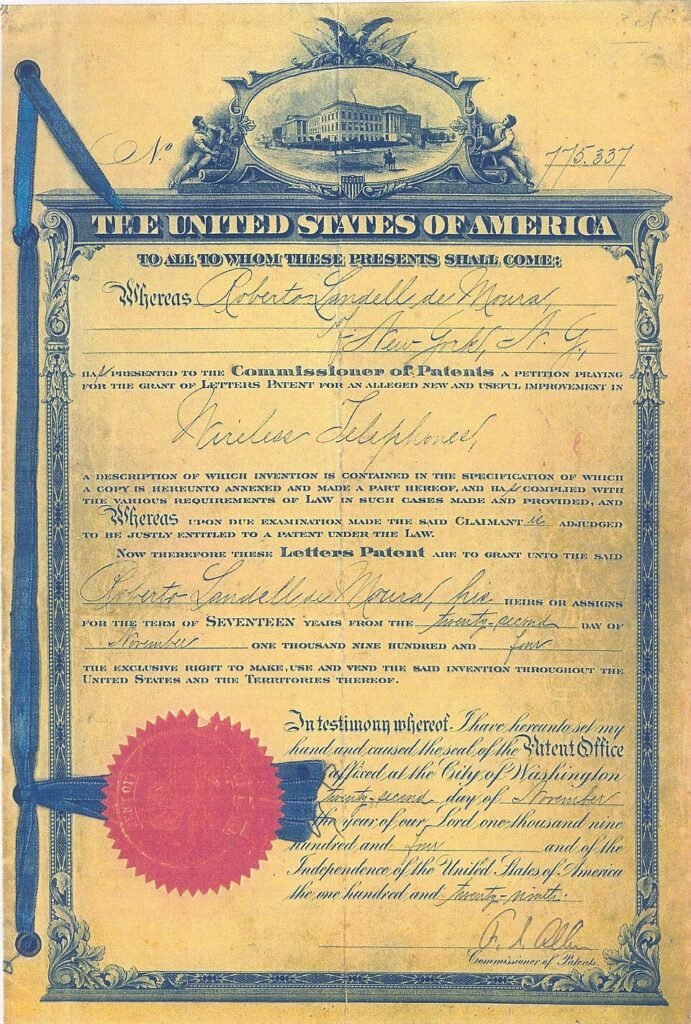 No. 775.337
THE UNITED STATES OF AMERICA
TO ALL TO WHOM THESE PRESENTS SHALL COME:
Whereas Roberto Landell de Moura,
of New York, N. Y.,
HAs PRESENTED TO THE Commissioner of Patents A PETITION PRAYING
FOR THE GRANT OF LETTERS PATENT FOR AN ALLEGED NEW AND USEFUL IMPROVEMENT IN
Wireless Telephones,
A DESCRIPTION OF WHICH INVENTION IS CONTAINED IN THE SPECIFICATION OF WHICH
A COPY IS HEREUNTO ANNEXED AND MADE A PART HEREOF, AND HAs COMPLIED WITH
THE VARIOUS REQUIREMENTS OF LAW IN SUCH CASES MADE AND PROVIDED, AND
Whereas UPON DUE EXAMINATION MADE THE SAID CLAIMANT is ADJUDGED
TO BE JUSTLY ENTITLED TO A PATENT UNDER THE LAW.
NOW THEREFORE THESE Letters Patent ARE TO GRANT UNTO THE SAID
Roberto Landell de Moura, his HEIRS OR ASSIGNS
FOR THE TERM OF SEVENTEEN YEARS FROM THE twenty-second DAY OF
November ONE THOUSAND NINE HUNDRED AND four
THE EXCLUSIVE RIGHT TO MAKE, USE AND VEND THE SAID INVENTION THROUGHOUT THE
UNITED STATES AND THE TERRITORIES THEREOF.
In testimony whereof, I have hereunto set my
hand and caused the seal of the Patent Office
affixed at the City of Washington
twenty-second day of November
the year of our Lord one thousand nine
hundred and four and of the
Independence of the United States of America
the one hundred and twenty-ninth.
F. I. Allen
Commissioner of Patents.